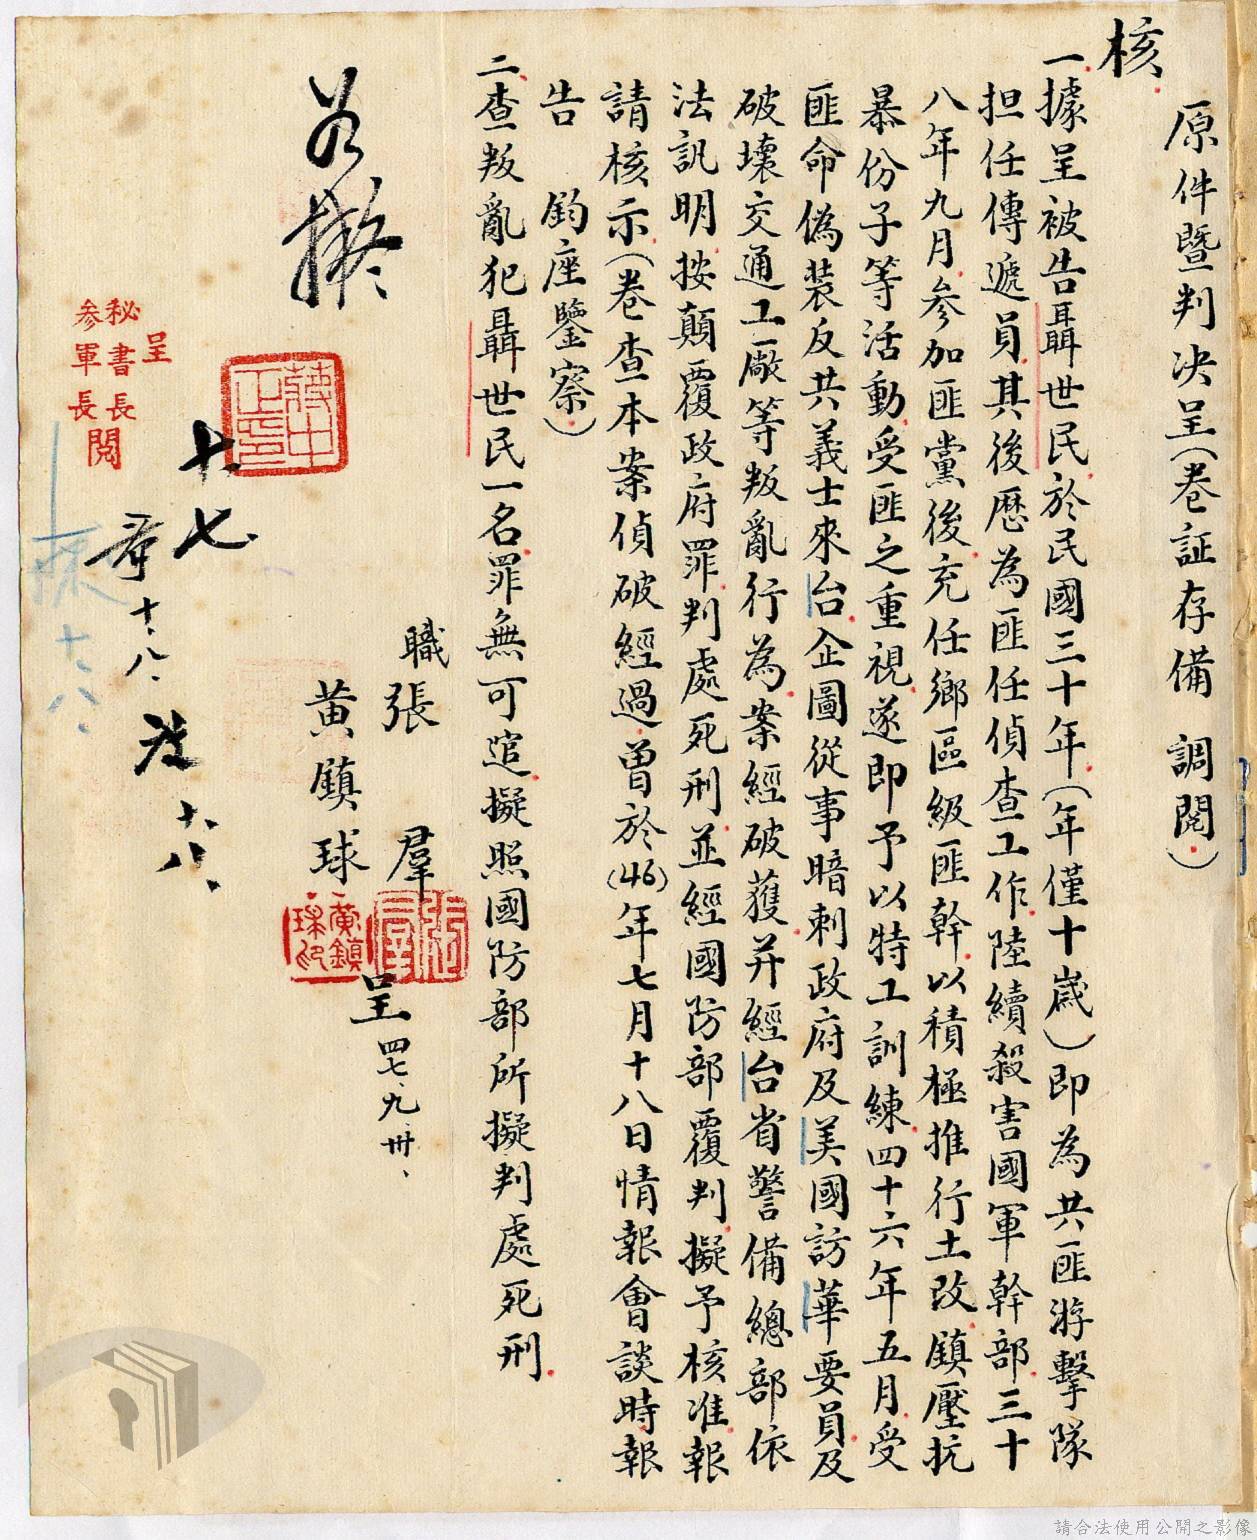 原件暨判決呈(卷証存備 調閱)
核
一據呈被告聶世民於民國三十年(年僅十歲)即為共匪游擊隊
担任傳遞員其後歷為匪任偵查工作陸續殺害國軍幹部三十
八年九月參加匪黨後充任鄉區級匪幹以積極推行土改鎮壓抗
暴份子等活動受匪之重視遂即予以特工訓練四十六年五月受
匪命偽裝反共義士來台企圖從事暗刺政府及美國訪華要員及
破壞交通工廠等叛亂行為案經破獲并經台省警備總部依
法訊明按顛覆政府罪判處死刑並經國防部覆判擬予核准報
請核示(卷查本案偵破經過曾於(46)年七月十八日情報會談時報
告 鈞座鑒察)
二查叛亂犯聶世民一名罪無可逭擬照國防部所擬判處死刑
職張 羣
黃鎮球
呈 四七、九、卅、
張羣
黃鎮球印
如擬
蔣中正印
十七
十、八、
十八、
呈
秘書長
參軍長
閱
十、八、
請合法使用公開之影像